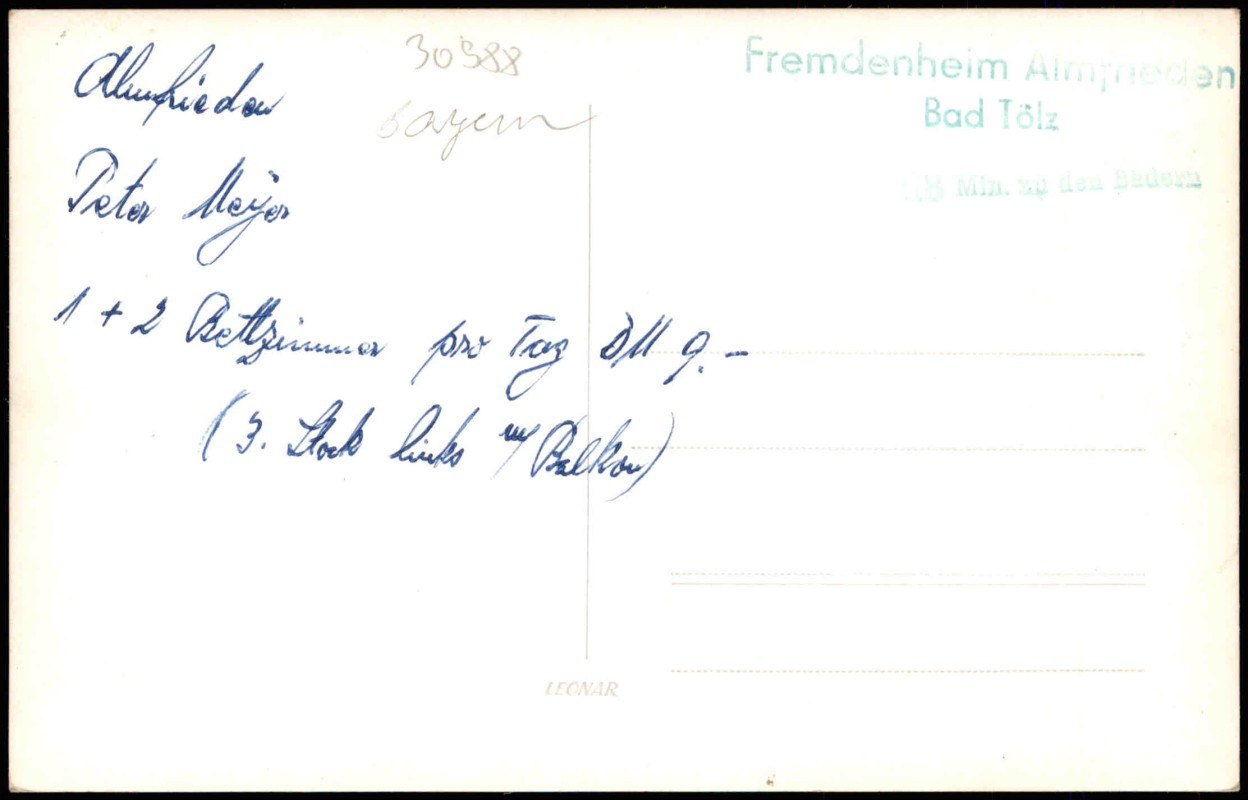 Almfrieden
Peter Meyer
1 + 2 Bettzimmer pro Tag DM 9.-
(3. Stock links m/ Balkon)
30388
Bayern
Fremdenheim Almfrieden
Bad Tölz
Min. zu den Bädern
LEONAR